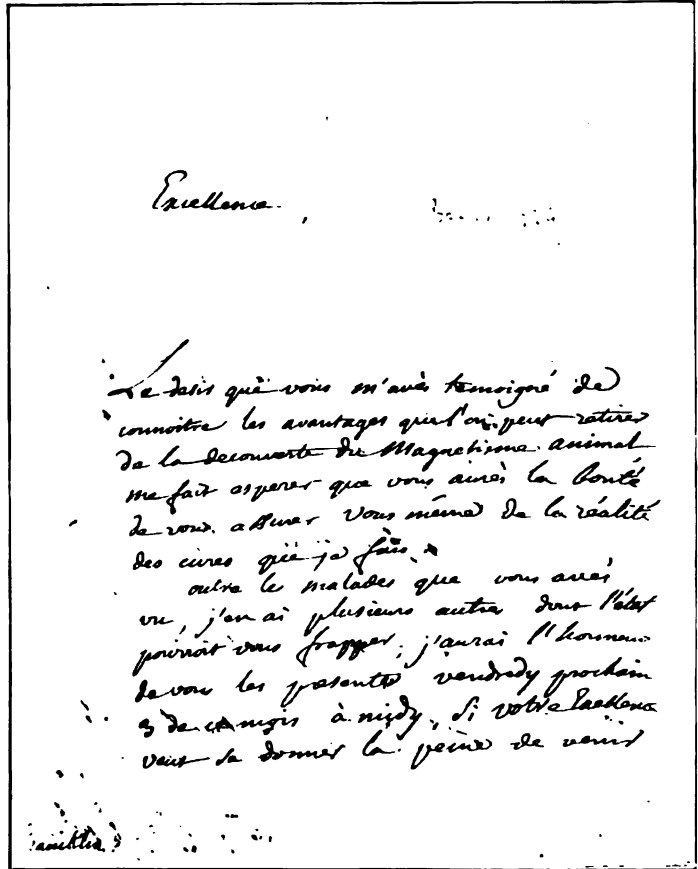 Excellence.
Le desir què vous m'avès temoigné de
connoitre les avantages que l'on peut retirer
de la decouverte du Magnetisme animal
me fait esperer que vous aurès la bonté
de vous assurer vous même de la réalité
des cures què je fais.
outre les malades que vous avès
vu, j'en ai plusieurs autres dont l'état
pourroit vous frapper; j'aurai l'honneur
de vous les presenter vendredy prochain
3 de ce mois à midy, si votre Excellence
veut se donner la peine de venir